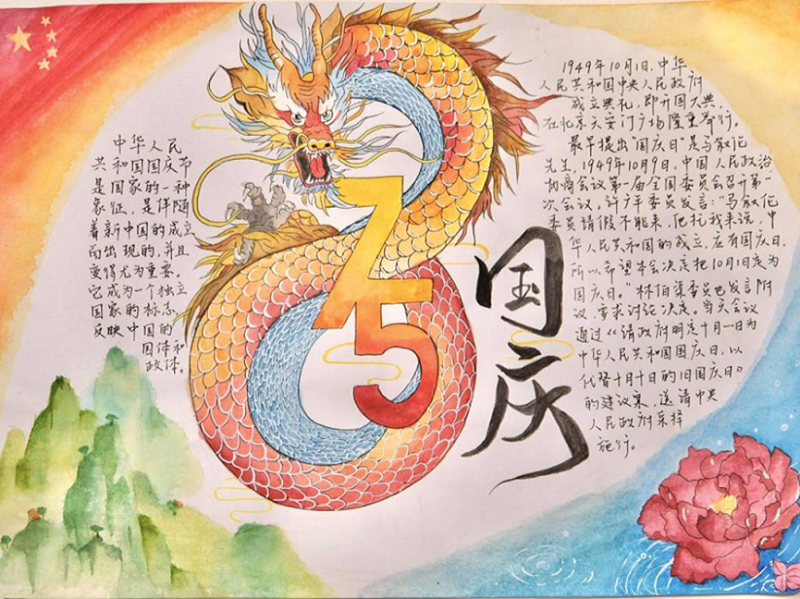 中华人民
共和国国庆节
是国家的一种
象征，是伴随
着新中国的成立
而出现的，并且
变得尤为重要。
它成为一个独立
国家的标志，
反映中国的
国体和
政体。
75
国庆
1949年10月1日，中华
人民共和国中央人民政府
成立典礼，即开国大典，
在北京天安门广场隆重举行。
最早提出“国庆日”是马叙伦
先生，1949年10月9日，中国人民政治
协商会议第一届全国委员会召开第一
次会议。许广平委员发言：“马叙伦
委员请假不能来，他托我来说，中
华人民共和国的成立，应有国庆日，
所以希望本会决定把10月1日定为
国庆日。”林伯渠委员也发言附
议，要求讨论决定。当天会议
通过《请政府明定十月一日为
中华人民共和国国庆日，以
代替十月十日的旧国庆日》
的建议案，送请中央
人民政府采择
施行。